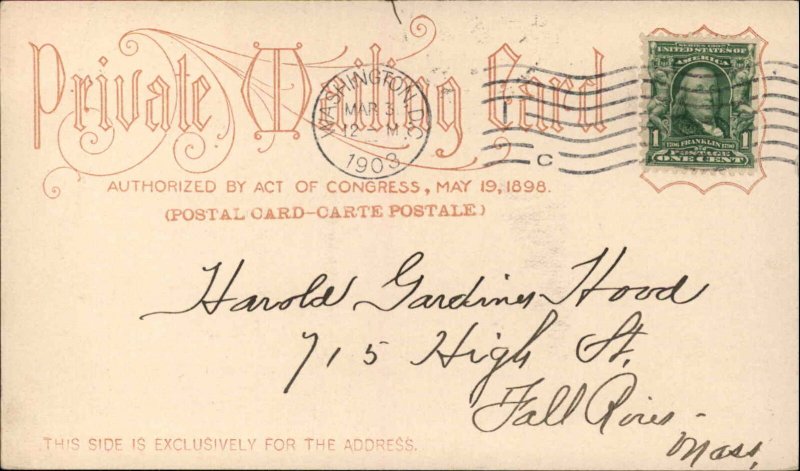 Private Mailing Card
WASHINGTON, D.C.
MAR 3
12 M
1903
C
SERIES 1902
UNITED STATES OF
AMERICA
1706 FRANKLIN 1790
1 POSTAGE 1
ONE CENT
AUTHORIZED BY ACT OF CONGRESS, MAY 19, 1898.
(POSTAL CARD—CARTE POSTALE)
Harold Gardiner Hood
715 High St.
Fall River -
Mass.
THIS SIDE IS EXCLUSIVELY FOR THE ADDRESS.